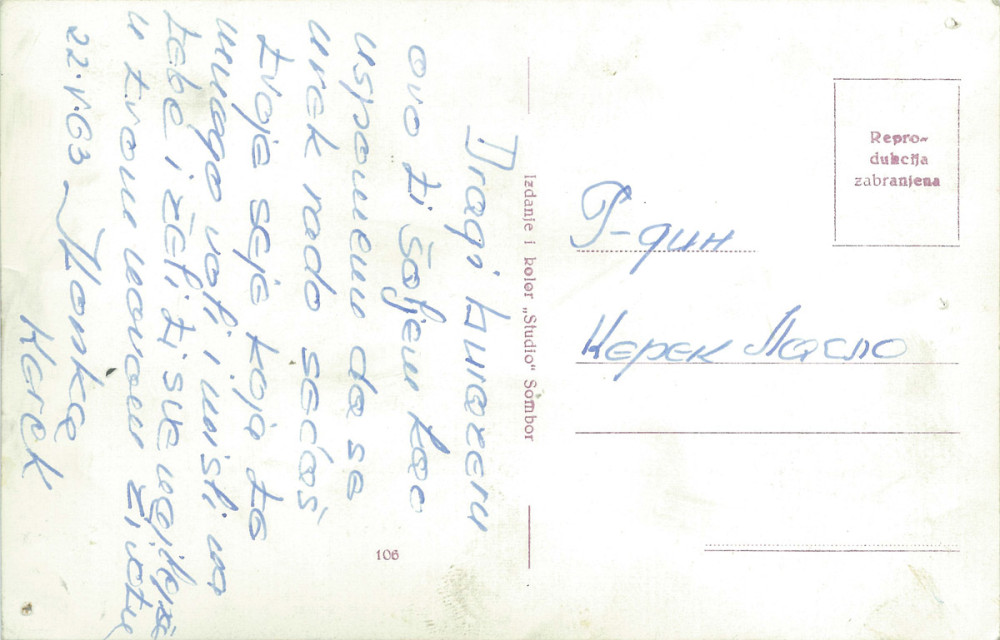 Dragi kumazeru
ovo ti šaljem kao
uspomenu da se
uvek rado sećaš
tvoje seje koja te
mnogo voli i misli na
tebe i želi ti sve najlepše
u tvom novom životu
22.V.63 Ilonka
Kerek
Izdanje i kolor „Studio" Sombor
106
Repro-
dukcija
zabranjena
Г-дин
Керек Ласло